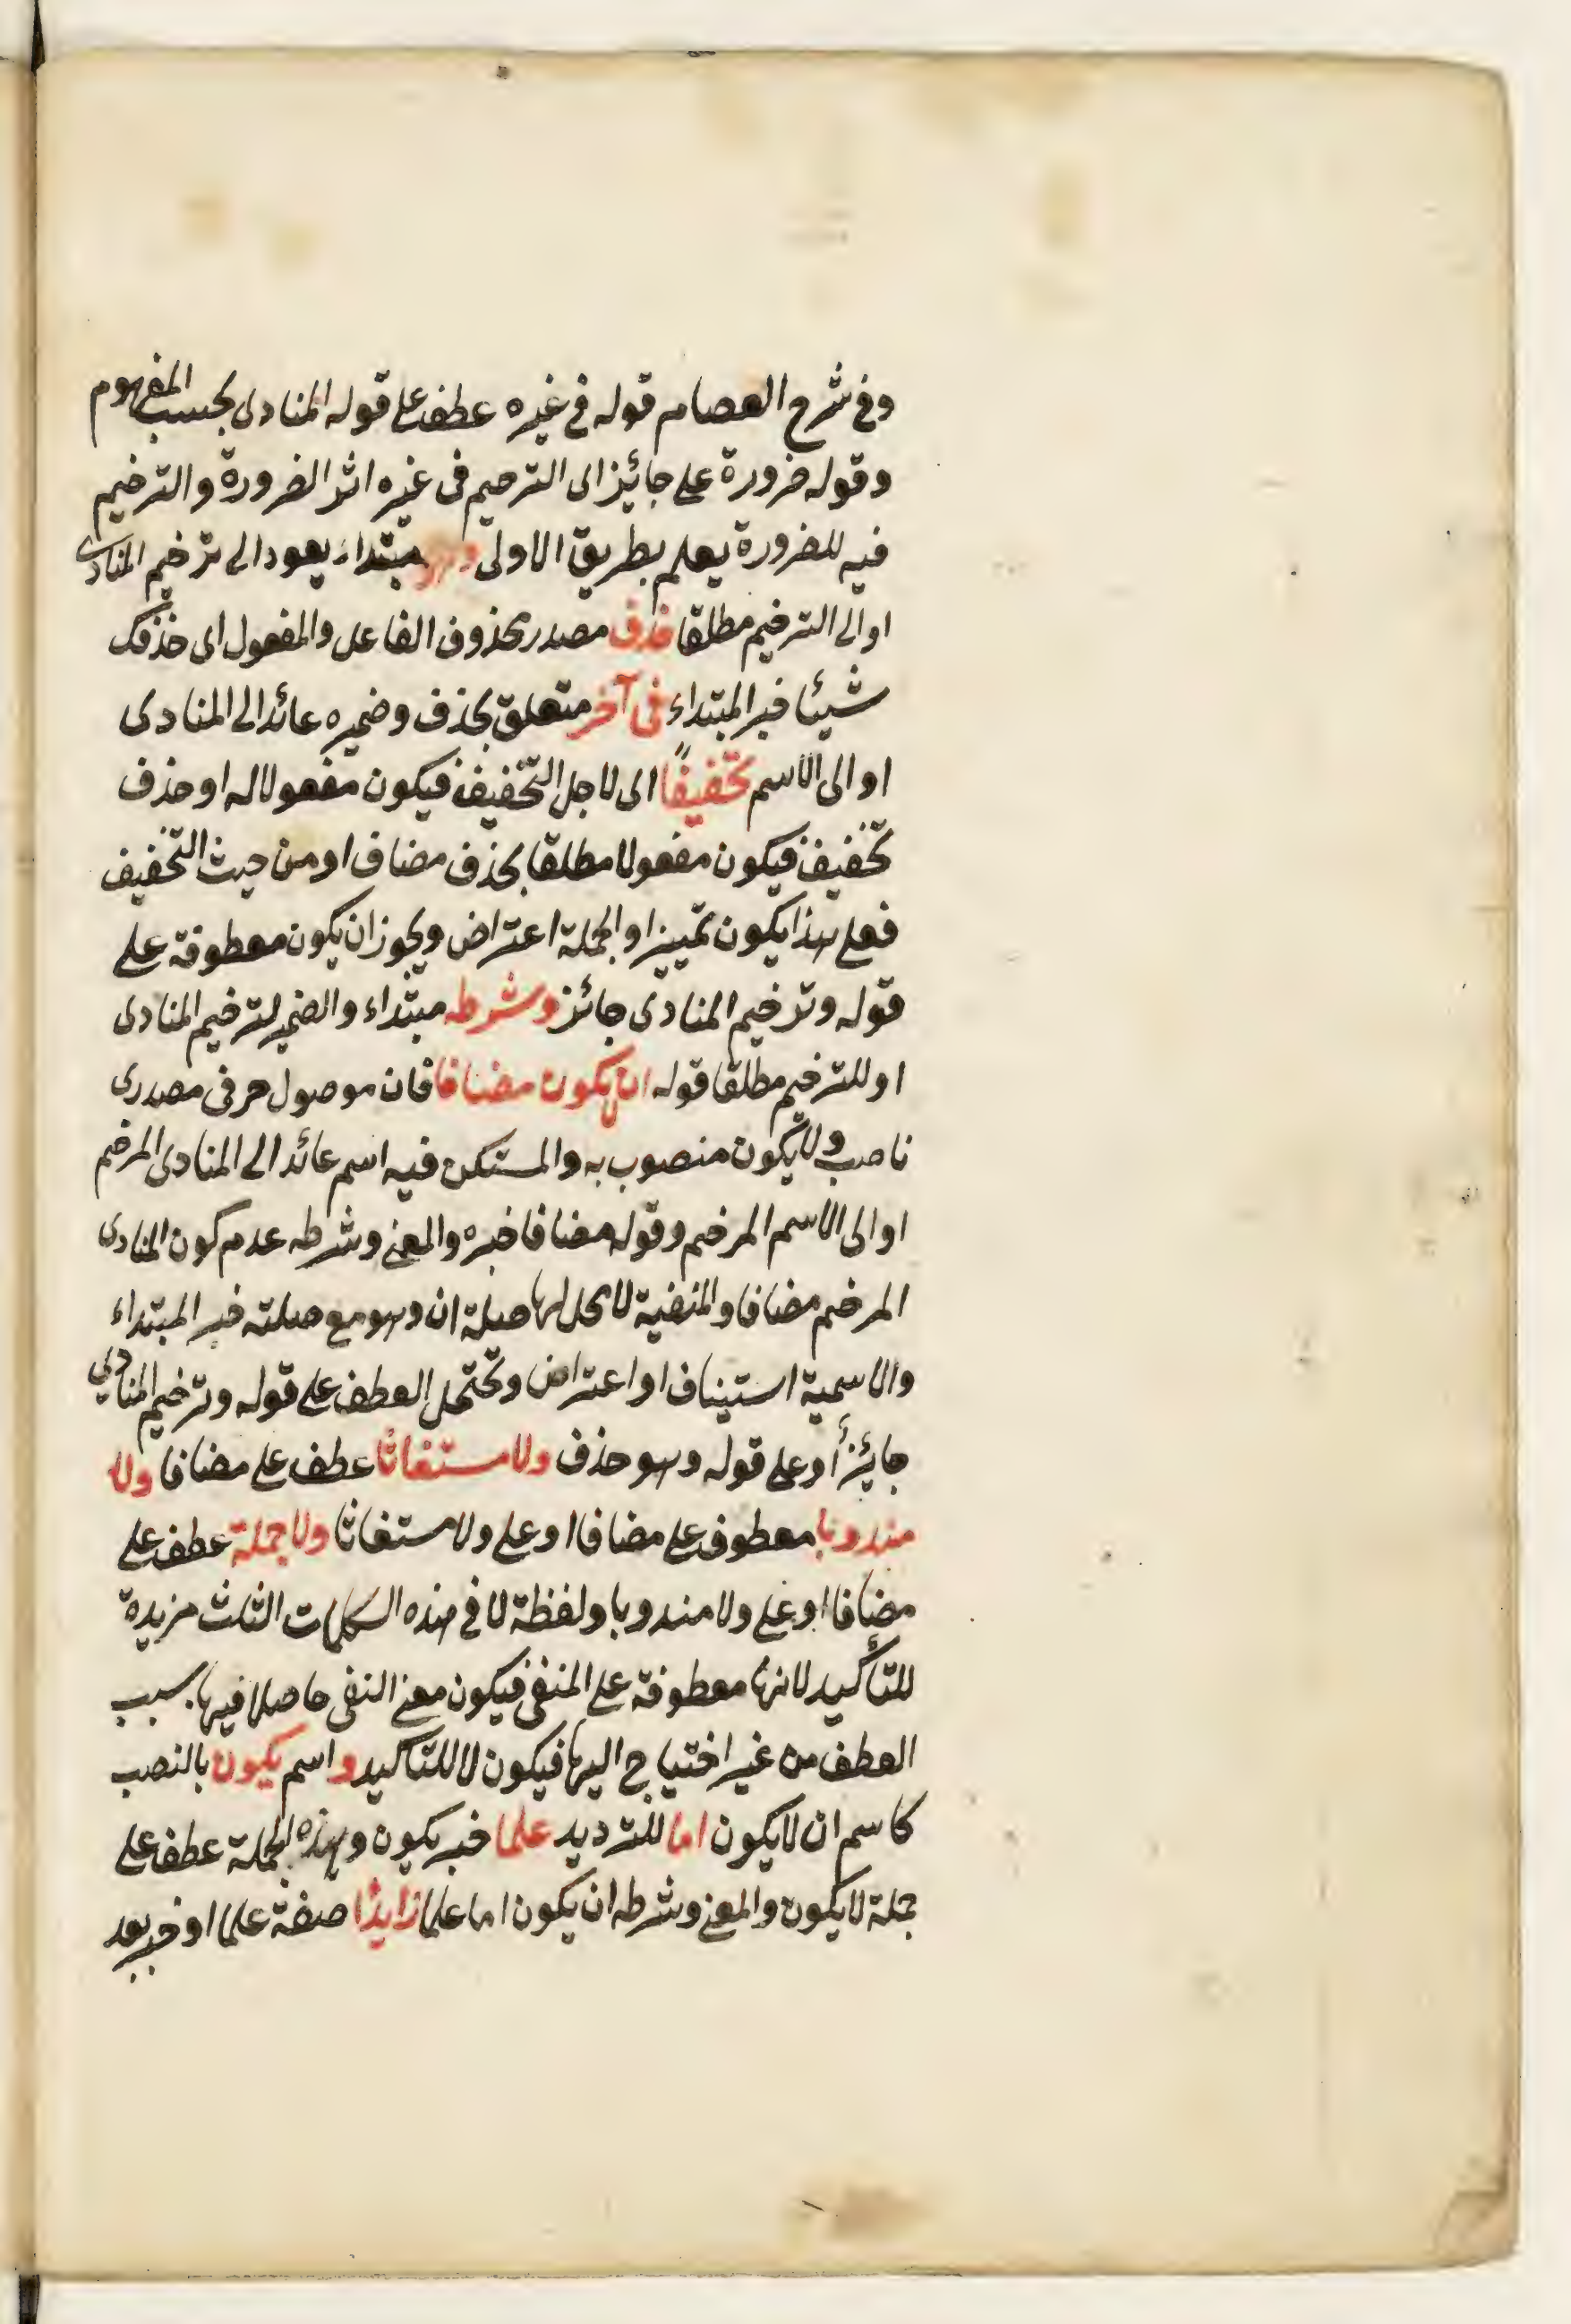 وفى شرح العصام قوله فى غيره عطف على قوله المنادى بحسب المفهوم
وقوله ضرورة على جائز اى الترخيم فى غيره اثر الضرورة والترخيم
فيه للضرورة يعلم بطريق الاولى وهو مبتداء يعود الى ترخيم المنادى
او الى الترخيم مطلقا حذف مصدر محذوف الفاعل والمفعول اى حذفك
شيئا خبر المبتداء فى آخره متعلق بحذف وضميره عائد الى المنادى
او الى الاسم تخفيفًا اى لاجل التخفيف فيكون مفعولا له او حذف
تخفيف فيكون مفعولا مطلقا بحذف مضاف او من حيث التخفيف
فعلى هذا يكون تمييزا والجملة اعتراض ويجوز ان يكون معطوفة على
قوله وترخيم المنادى جائز وشرطه مبتداء والضمير لترخيم المنادى
او للترخيم مطلقا قوله ان لا يكون مضافا فان موصول حرفى مصدرى
ناصب ولا يكون منصوب به والمستكن فيه اسم عائد الى المنادى المرخم
او الى الاسم المرخم وقوله مضافا خبره والمعنى وشرطه عدم كون المنادى
المرخم مضافا والمنفية لا محل لها صلة ان وهو مع صلته خبر المبتداء
والاسمية استيناف او اعتراض وتحتمل العطف على قوله وترخيم المنادى
جايئز أو على قوله وهو حذف ولا مستغاثا عطف على مضافا ولا
مندوبا معطوف على مضافا او على ولا مستغاثا ولا جملة عطف على
مضافا او على ولا مندوبا ولفظة لا فى هذه الكلمات الثلث مزيدة
للتأكيد لانها معطوفة على المنفى فيكون معنى النفى حاصلا فيها بسبب
العطف من غير احتياج اليها فيكون لا للتاكيد واسم يكون بالنصب
كاسم ان لا يكون اما للترديد علما خبر يكون وهذه الجملة عطف على
جملة لا يكون والمعنى وشرطه ان يكون اما علما زايدًا صفة علما او خبر بعد